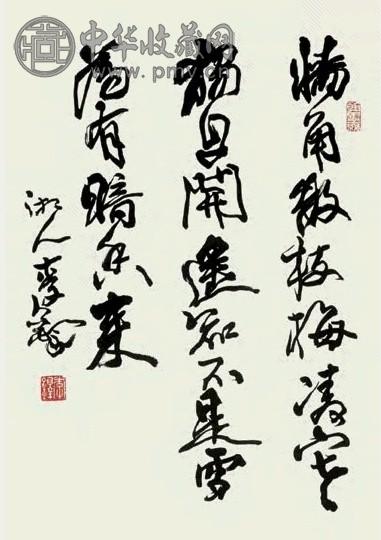 墙角数枝梅凌寒
独自開遥知不是雪
為有暗香来
湘人李
中华收藏网
www.pmv.cn